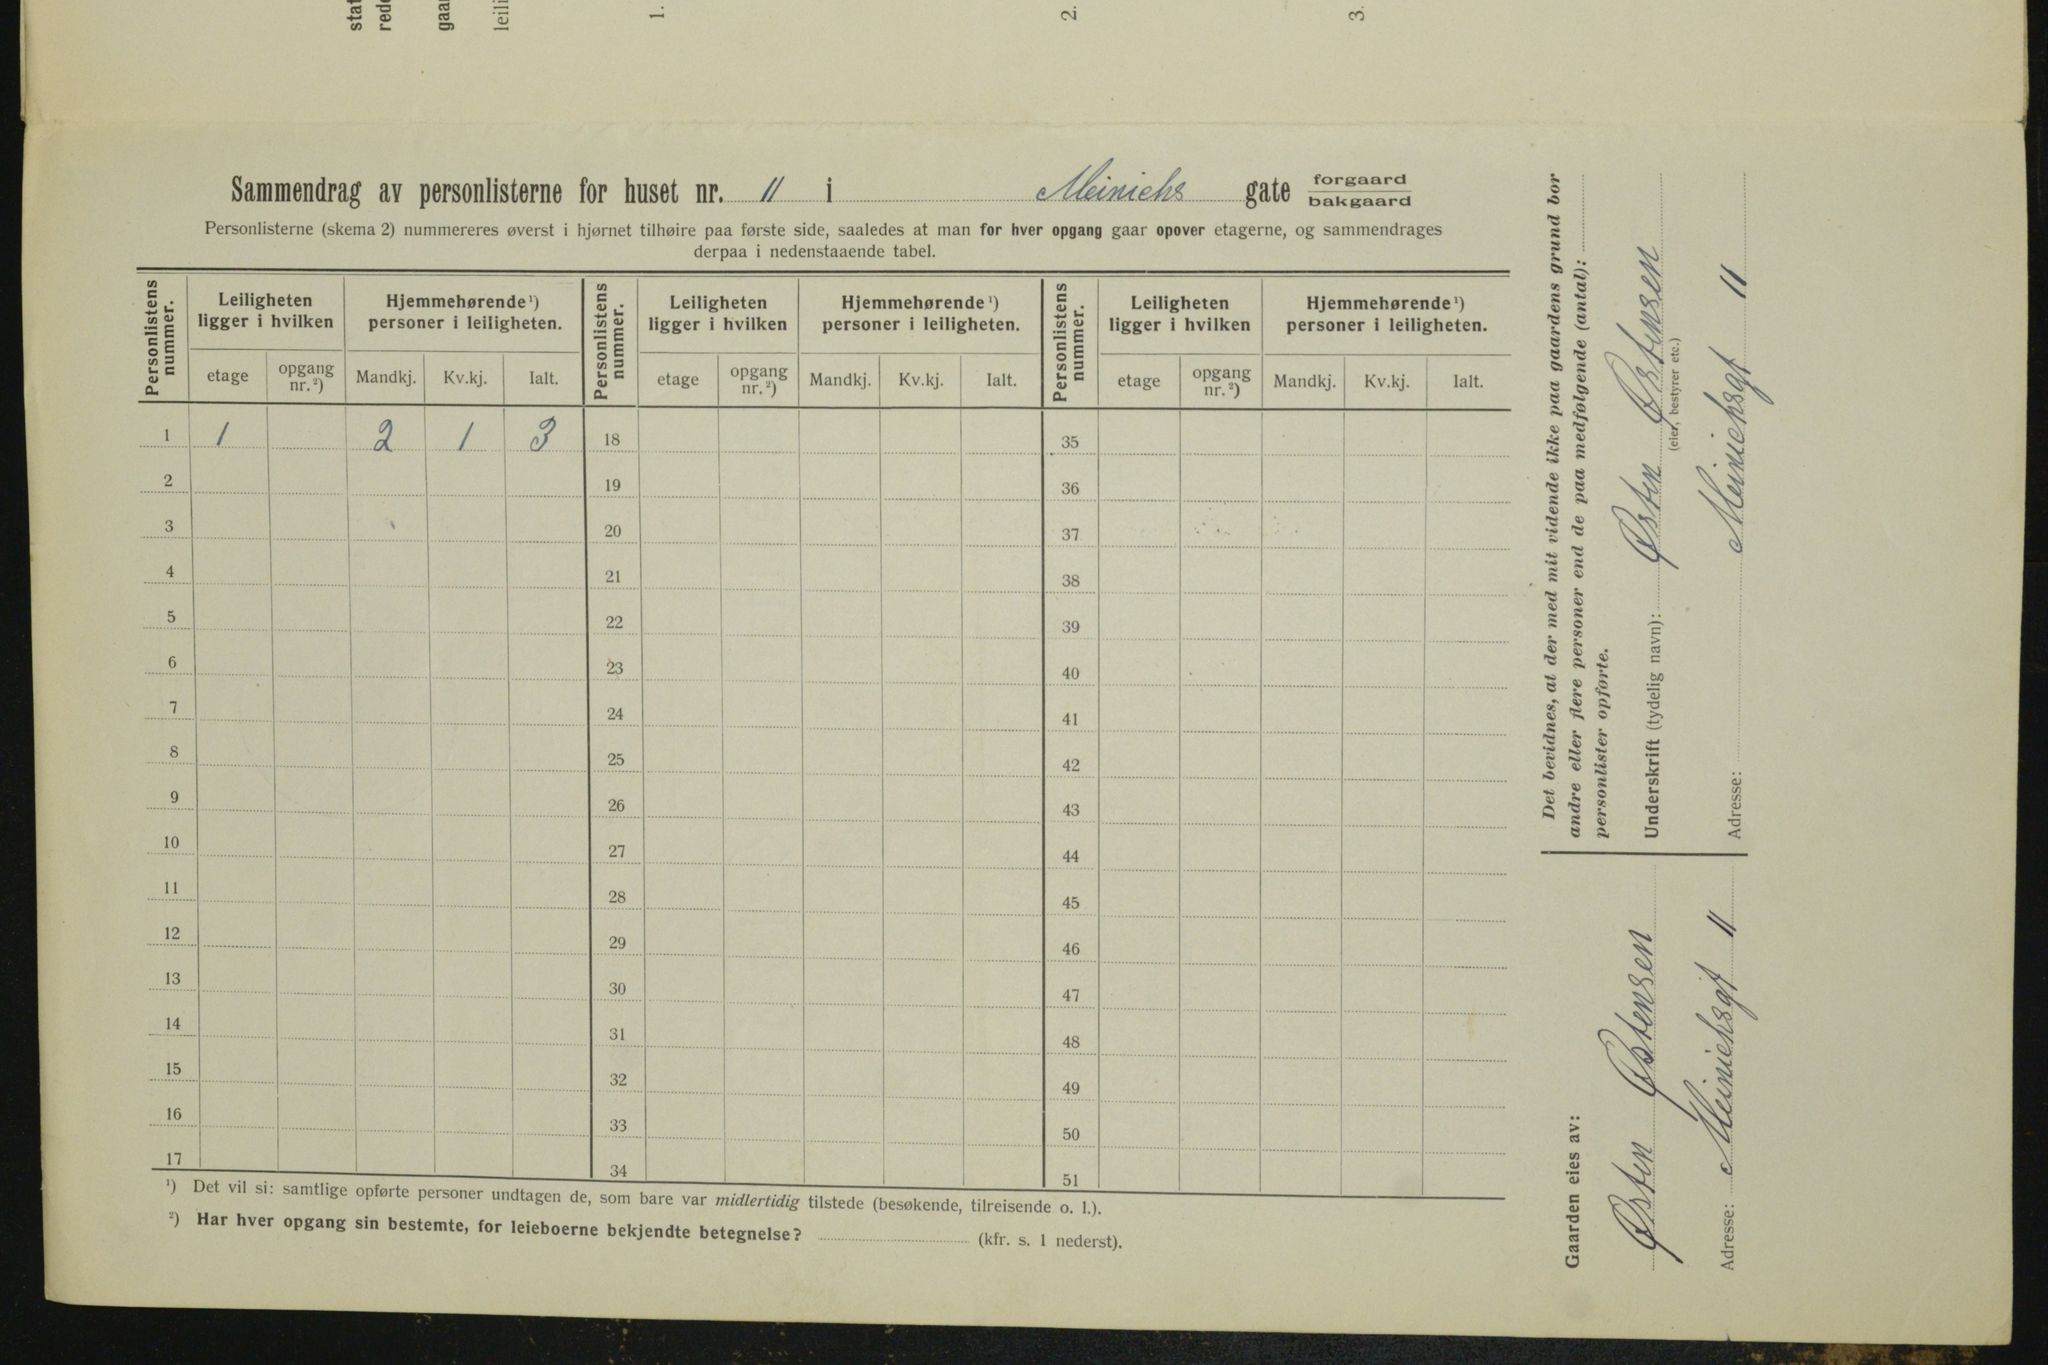 stat
rede
gaar
leili
1.
2.
3.
Sammendrag av personlisterne for huset nr. 11 i Meinichs gate forgaard
bakgaard
Personlisterne (skema 2) nummereres øverst i hjørnet tilhøire paa første side, saaledes at man for hver opgang gaar opover etagerne, og sammendrages
derpaa i nedenstaaende tabel.
Personlistens nummer. Leiligheten ligger i hvilken Hjemmehørende ¹) personer i leiligheten. Personlistens nummer. Leiligheten ligger i hvilken Hjemmehørende ¹) personer i leiligheten. Personlistens nummer. Leiligheten ligger i hvilken Hjemmehørende ¹) personer i leiligheten.
etage opgang nr. ²) Mandkj. Kv.kj. Ialt. etage opgang nr. ²) Mandkj. Kv.kj. Ialt. etage opgang nr. ²) Mandkj. Kv.kj. Ialt.
1 1 2 1 3 18 35
2 19 36
3 20 37
4 21 38
5 22 39
6 23 40
7 24 41
8 25 42
9 26 43
10 27 44
11 28 45
12 29 46
13 30 47
14 31 48
15 32 49
16 33 50
17 34 51
¹) Det vil si: samtlige opførte personer undtagen de, som bare var midlertidig tilstede (besøkende, tilreisende o. l.).
²) Har hver opgang sin bestemte, for leieboerne bekjendte betegnelse? (kfr. s. 1 nederst).
Gaarden eies av:
Østen Østensen
Adresse: Meinichsgt 11
Det bevidnes, at der med mit vidende ikke paa gaardens grund bor
andre eller flere personer end de paa medfølgende (antal):
personlister opførte.
Underskrift (tydelig navn): Østen Østensen
(eier, bestyrer etc.)
Adresse: Meinichsgt 11